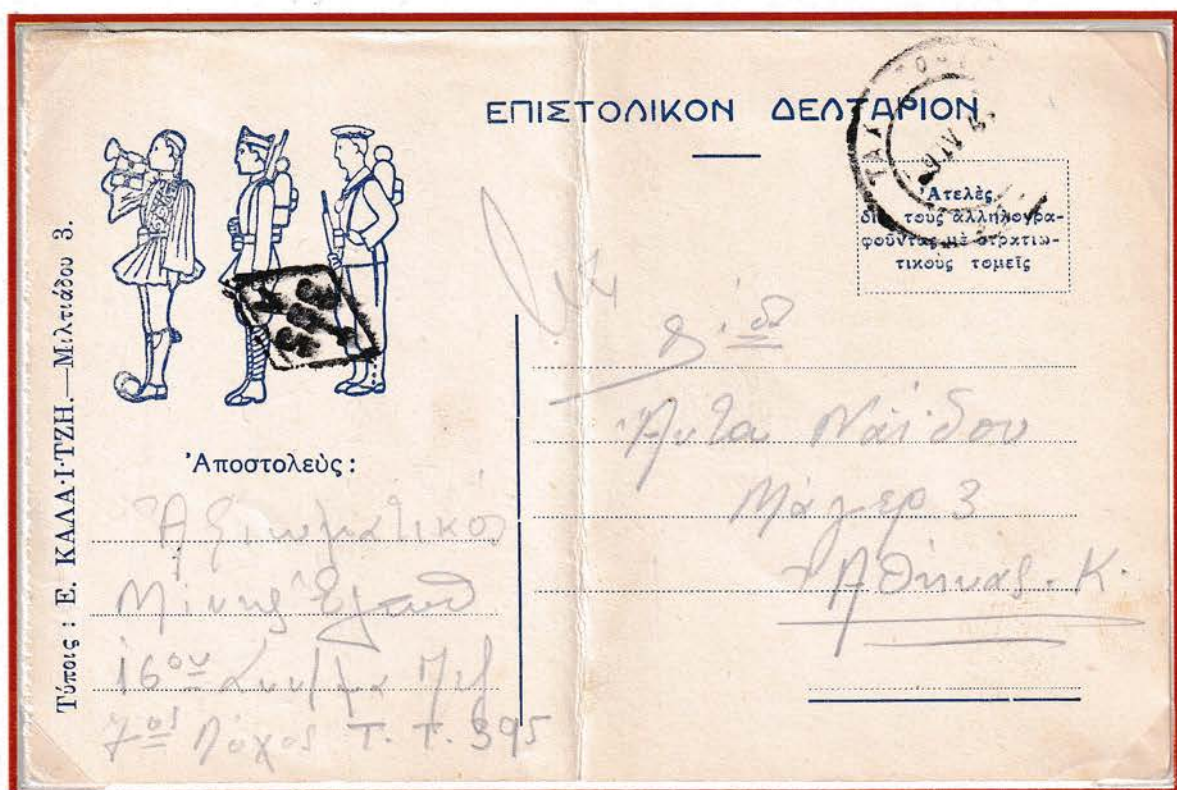 Τύποις : Ε. ΚΑΛΑ·Ι·ΤΖΗ.—Μιλτιάδου 3.
ΕΠΙΣΤΟΛΙΚΟΝ ΔΕΛΤΑΡΙΟΝ
ΤΑΧ
IV
Ἀτελὲς
διὰ τοὺς ἀλληλογρα-
φοῦντας μὲ στρατιω-
τικοὺς τομεῖς
Ἀποστολεὺς :
Ἀξιωματικός
Μίνης
16ου Συν/μα Πεζ
7ος Λόχος Τ. Τ. 395
Δίδ
Νάϊδου
Μάγερ 3
Ἀθήνας. Κ.